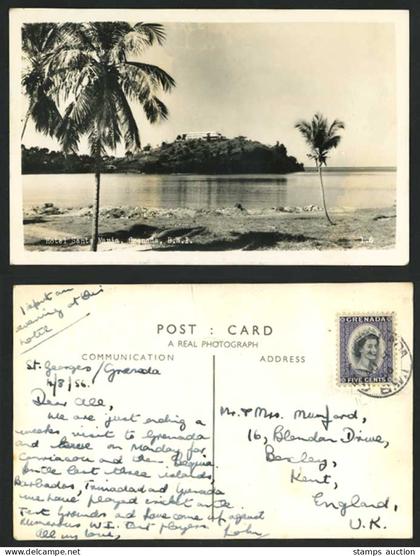 Hotel Santa Maria, Grenada, B.W.I.
I spent an
evening at this
hotel
POST : CARD
A REAL PHOTOGRAPH
COMMUNICATION
ADDRESS
GRENADA
FIVE CENTS
St. Georges / Grenada
4/8/56.
Dear All,
We are just ending a
weeks visit to Grenada
and leave on Monday for
Carriacou and then Bequia.
In the last three islands,
Barbados, Trinidad and Grenada
we have played cricket on the
Test Grounds and have come up against
numerous W.I. Test Players
All my love, John
Mr. & Mrs. Mumford,
16, Blendon Drive,
Bexley,
Kent,
England,
U.K.
stamps.collect.shop